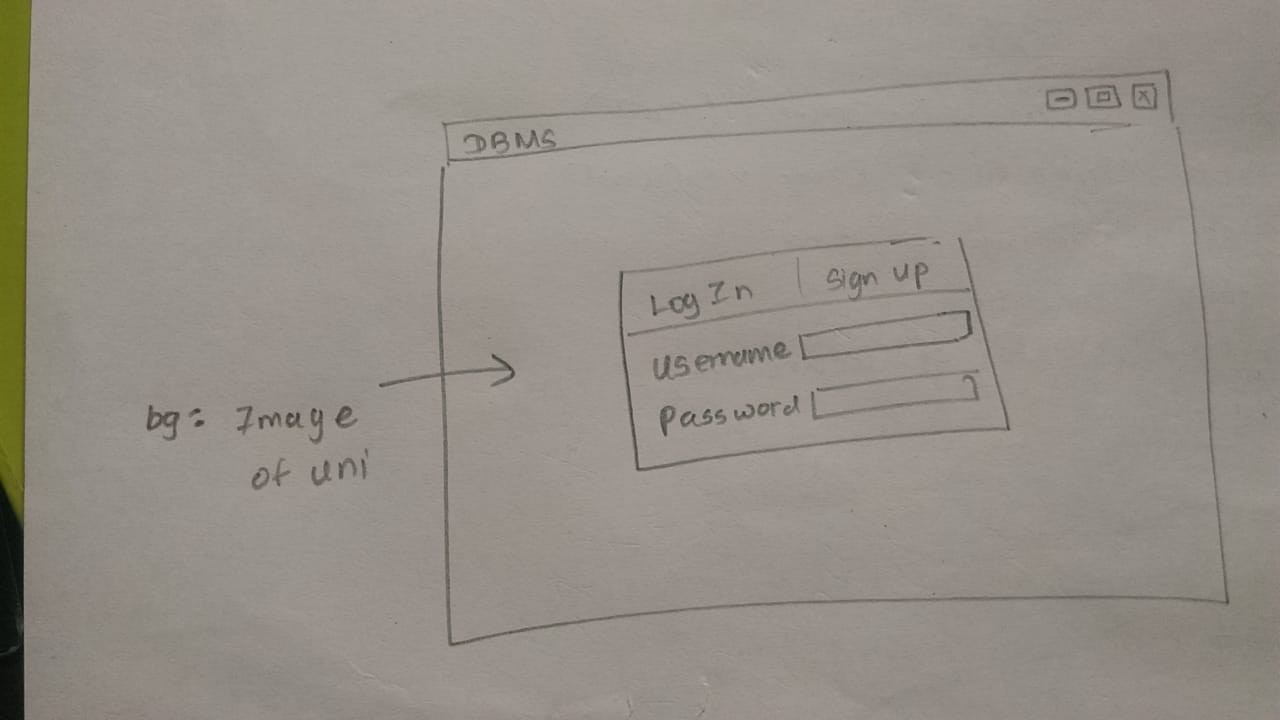 DBMS
Log In | Sign up
Username
Password
bg: Image
of uni